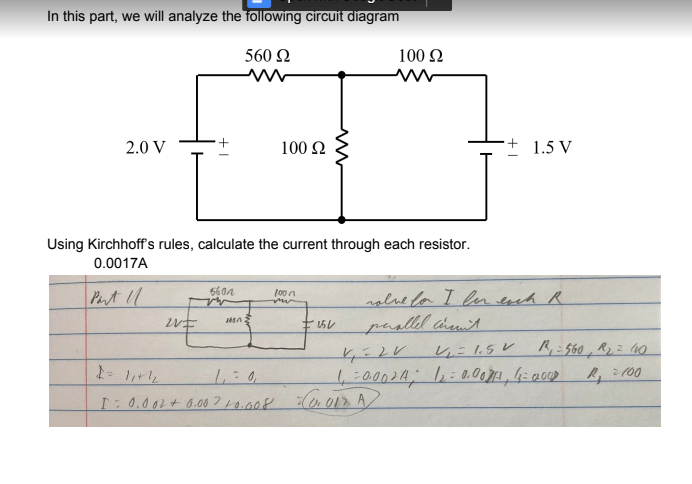 In this part, we will analyze the following circuit diagram
560 Ω 100 Ω
2.0 V + 100 Ω + 1.5 V
Using Kirchhoff's rules, calculate the current through each resistor.
0.0017A
Part 11
560Ω 100Ω
solve for I for each R
2V 1.5V
parallel circuit
V₁ = 2V V₂ = 1.5 V R₁ = 560, R₂ = 100
I = I₁ + I₂ I₁ = 0, I₁ = 0.002A; R₃ = 100
I = 0.002 + 0.007 + 0.008 = A